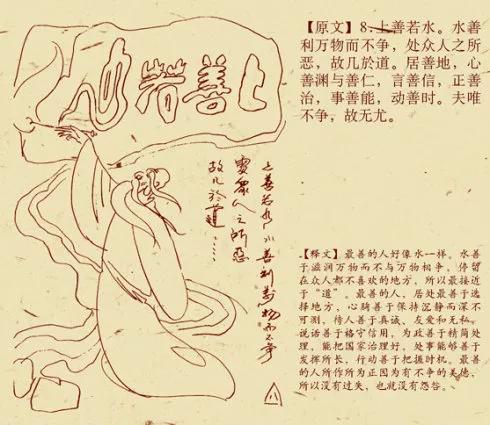 上善若水
上善若水水善利萬物而不争
處衆人之所惡
故几於道……
八
【原文】8.上善若水。水善
利万物而不争，处众人之所
恶，故几於道。居善地，心
善渊与善仁，言善信，正善
治，事善能，动善时。夫唯
不争，故无尤。
【释文】最善的人好像水一样。水善
于滋润万物而不与万物相争，停留
在众人都不喜欢的地方，所以最接近
于“道”。最善的人，居处最善于选
择地方，心胸善于保持沉静而深不
可测，待人善于真诚、友爱和无私，
说话善于格守信用，为政善于精简处
理，能把国家治理好，处事能够善于
发挥所长，行动善于把握时机。最善
的人所作所为正因为有不争的美德，
所以没有过失，也就没有怨咎。